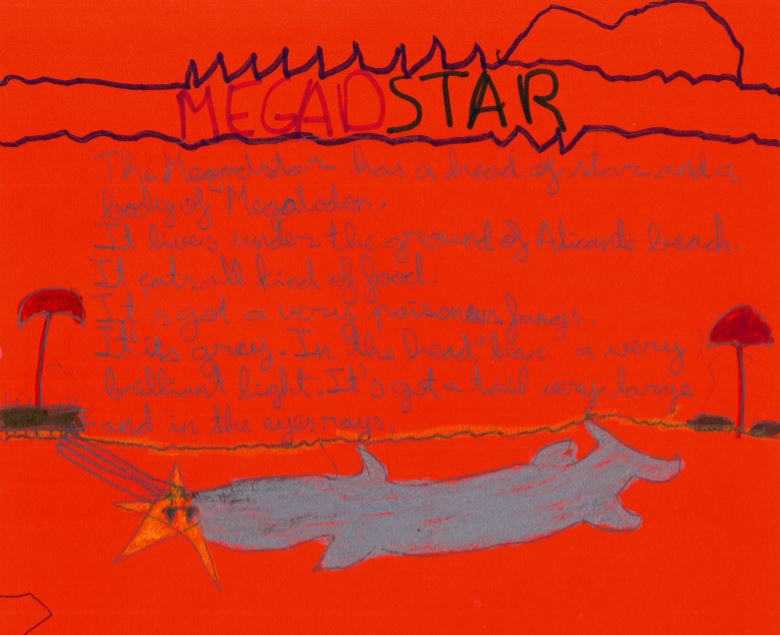 MEGADSTAR
The Megadstar has a head of star and a
body of Megalodon.
It lives under the ground of Alicante beach.
It eats all kind of food.
It's got a very poisoneys fangs.
It its grey. In the head has a very
brilliant light. It's got a tail very large
and in the eyes rays.